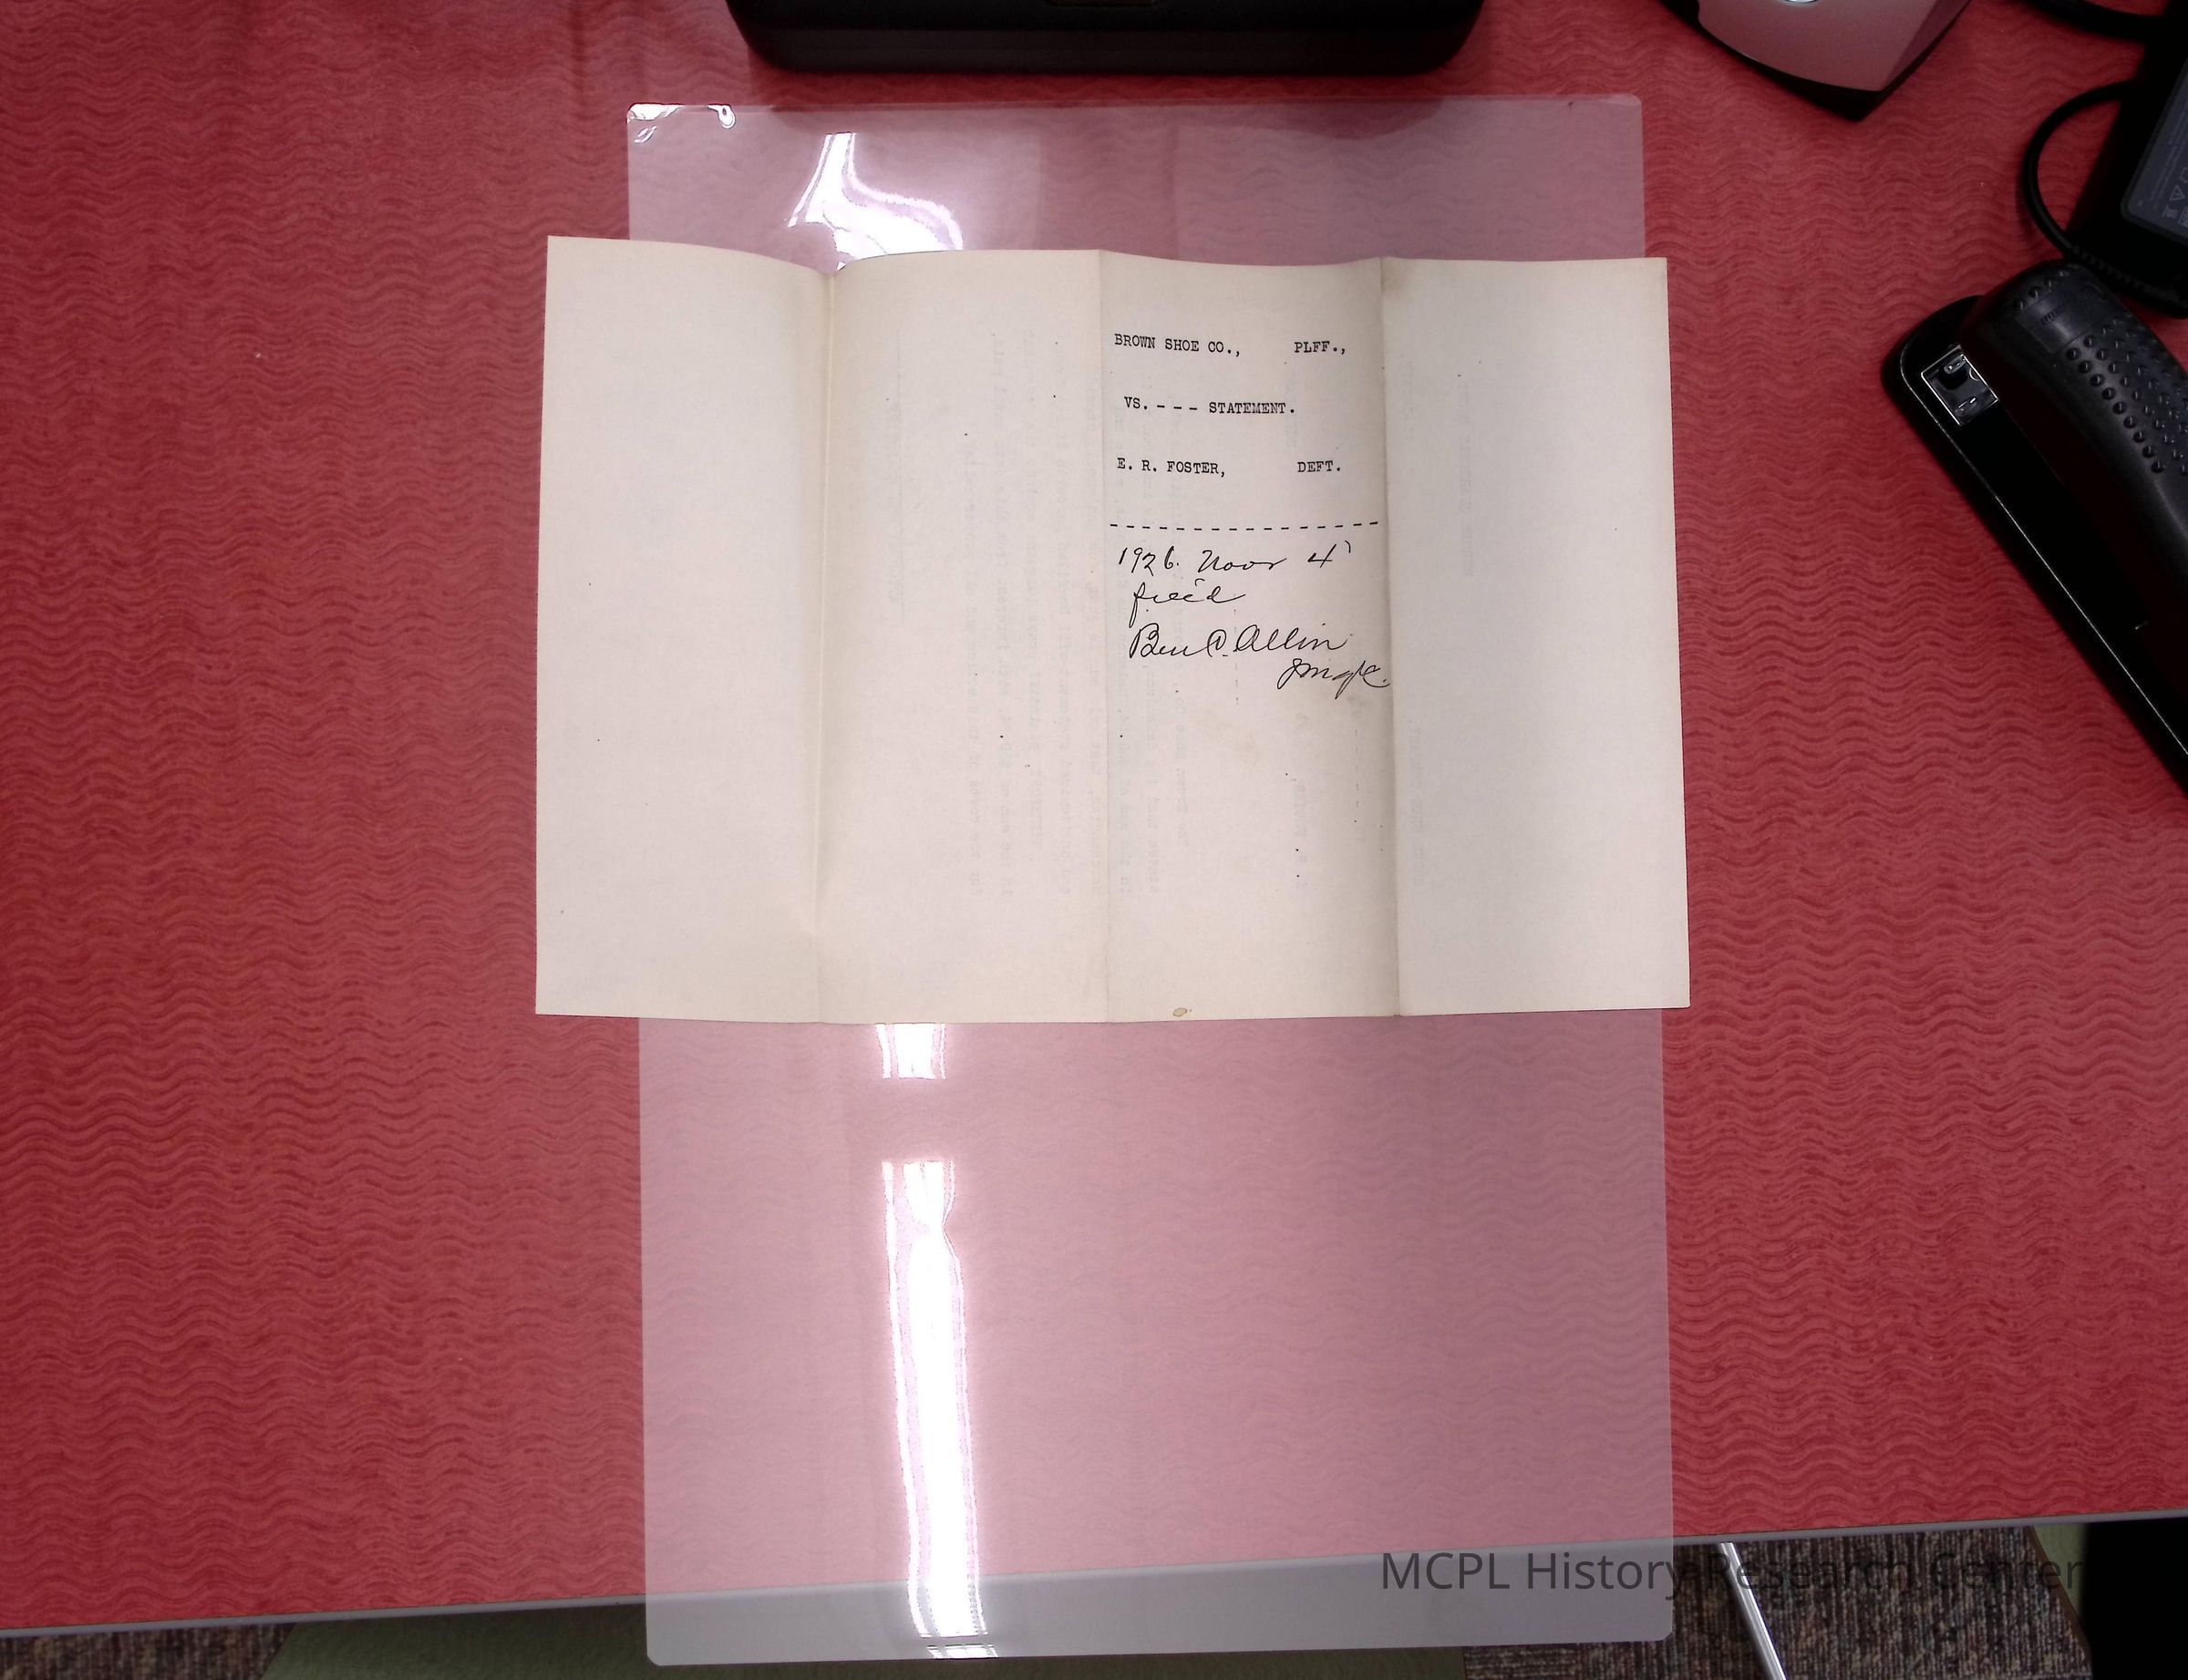 BROWN SHOE CO., PLFF.,
VS. - - - STATEMENT.
E. R. FOSTER, DEFT.
- - - - - - - - - - - - - - - -
1926. Novr 4
filed
Ben C. Allin
MCPL History Research Center